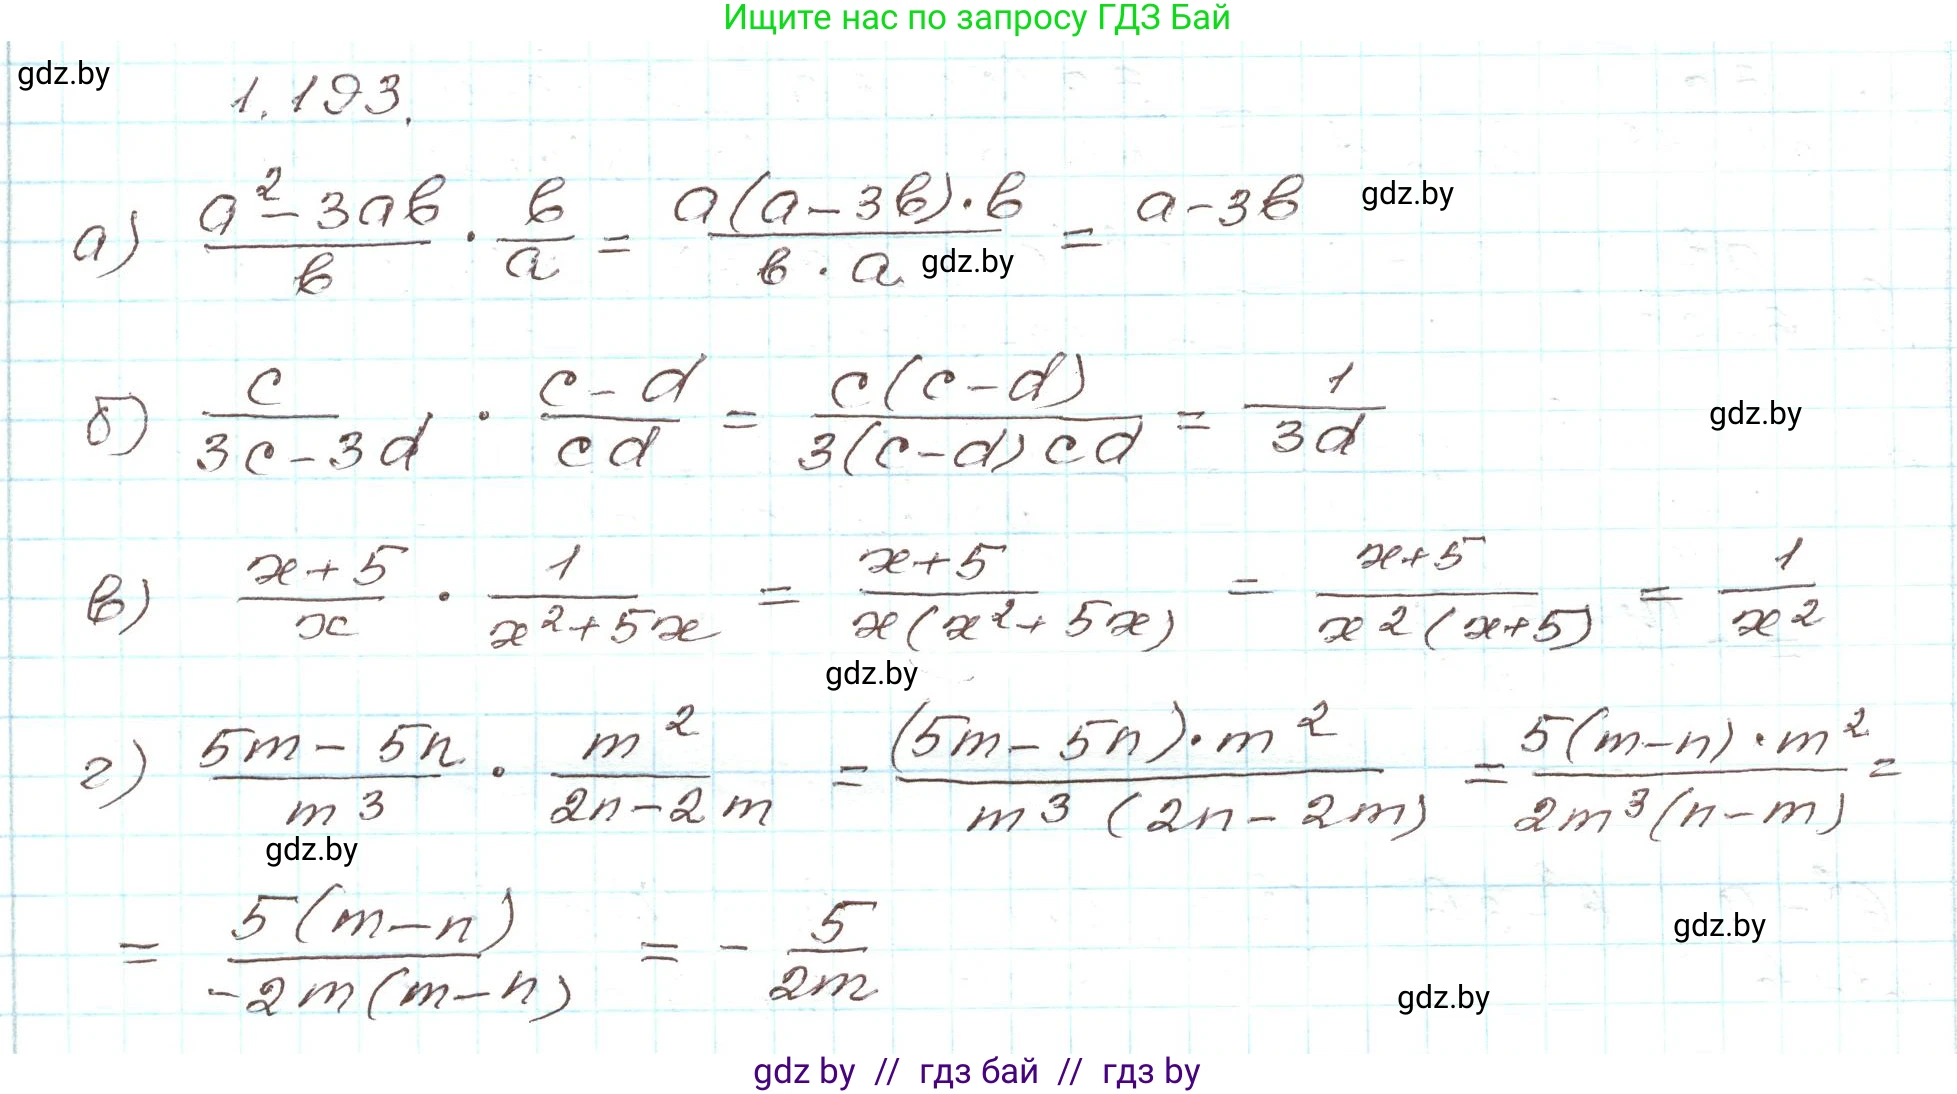 Ищите нас по запросу ГДЗ Бай
gdz.by
1.193.
а) \frac{a^2-3ab}{b} · \frac{b}{a} = \frac{a(a-3b)·b}{b·a} = a-3b
gdz.by
gdz.by
б) \frac{c}{3c-3d} · \frac{c-d}{cd} = \frac{c(c-d)}{3(c-d)cd} = \frac{1}{3d}
gdz.by
в) \frac{x+5}{x} · \frac{1}{x^2+5x} = \frac{x+5}{x(x^2+5x)} = \frac{x+5}{x^2(x+5)} = \frac{1}{x^2}
gdz.by
г) \frac{5m-5n}{m^3} · \frac{m^2}{2n-2m} = \frac{(5m-5n)·m^2}{m^3(2n-2m)} = \frac{5(m-n)·m^2}{2m^3(n-m)} =
gdz.by
= \frac{5(m-n)}{-2m(m-n)} = -\frac{5}{2m}
gdz.by
gdz.by
gdz by // гдз бай // гдз by